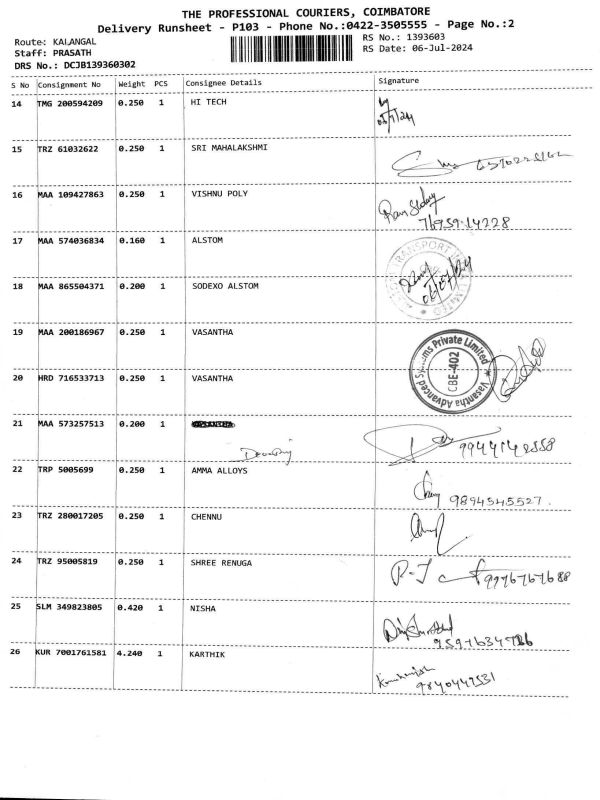 THE PROFESSIONAL COURIERS, COIMBATORE
Delivery Runsheet - P103 - Phone No.:0422-3505555 - Page No.:2
Route: KALANGAL
RS No.: 1393603
Staff: PRASATH
RS Date: 06-Jul-2024
DRS No.: DCJB139360302
S No Consignment No Weight PCS Consignee Details Signature
14 TMG 200594209 0.250 1 HI TECH
15 TRZ 61032622 0.250 1 SRI MAHALAKSHMI
16 MAA 109427863 0.250 1 VISHNU POLY
76959-14228
17 MAA 574036834 0.160 1 ALSTOM
TRANSPORT
LIMITED
18 MAA 865504371 0.200 1 SODEXO ALSTOM
19 MAA 200186967 0.250 1 VASANTHA
Vasantha Advanced Systems Private Limited
CBE-402
20 HRD 716533713 0.250 1 VASANTHA
21 MAA 573257513 0.200 1
22 TRP 5005699 0.250 1 AMMA ALLOYS
9894545527.
23 TRZ 280017205 0.250 1 CHENNU
24 TRZ 95005819 0.250 1 SHREE RENUGA
9976767688
25 SLM 349823805 0.420 1 NISHA
26 KUR 7001761581 4.240 1 KARTHIK